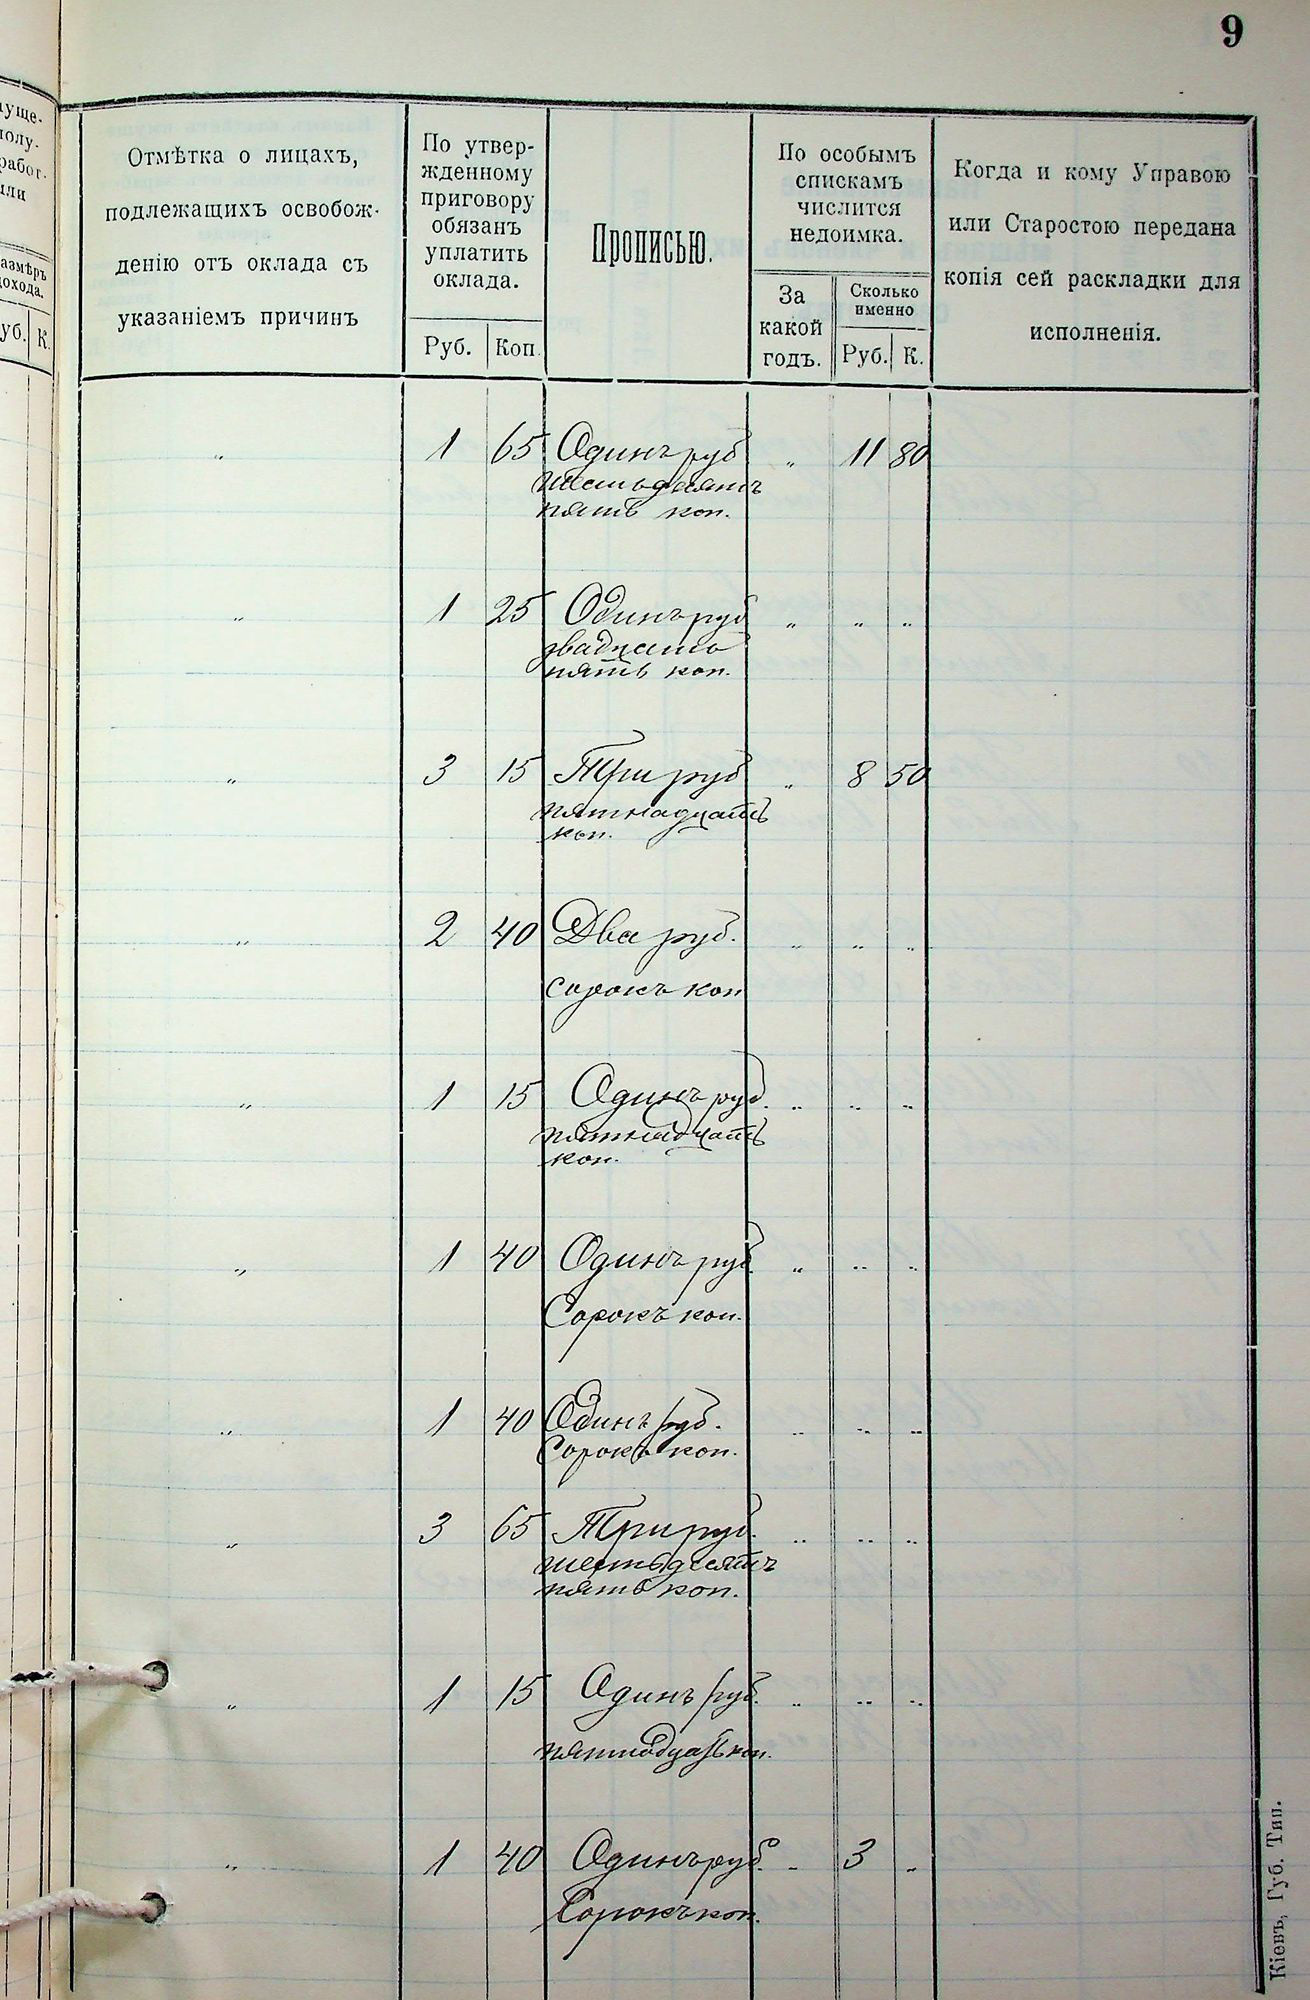 9
уще-
полу-
работ-
или
азмѣръ
дохода.
уб. К.
Отмѣтка о лицахъ,
подлежащихъ освобож-
денію отъ оклада съ
указаніемъ причинъ
По утвер-
жденному
приговору
обязанъ
уплатить
оклада.
Руб. Коп.
Прописью.
По особымъ
спискамъ
числится
недоимка.
За
какой
годъ.
Сколько
именно
Руб. К.
Когда и кому Управою
или Старостою передана
копія сей раскладки для
исполненія.
„ 1 65 Одинъ руб „ 11 80
шестьдесятъ
пять коп.
„ 1 25 Одинъ руб „ „ „
двадцать
пять коп.
„ 3 15 Три руб „ 8 50
пятнадцать
коп.
„ 2 40 Два руб. „ „ „
сорокъ коп
„ 1 15 Одинъ руб. „ „ „
пятнадцать
коп.
„ 1 40 Одинъ руб. „ „ „
Сорокъ коп.
„ 1 40 Одинъ руб. „ „ „
Сорокъ коп.
„ 3 65 Три руб. „ „ „
шестьдесятъ
пять коп.
„ 1 15 Одинъ руб. „ „ „
пятнадцать коп.
„ 1 40 Одинъ руб. „ 3 „
Сорокъ коп.
Кіевъ, Губ. Тип.